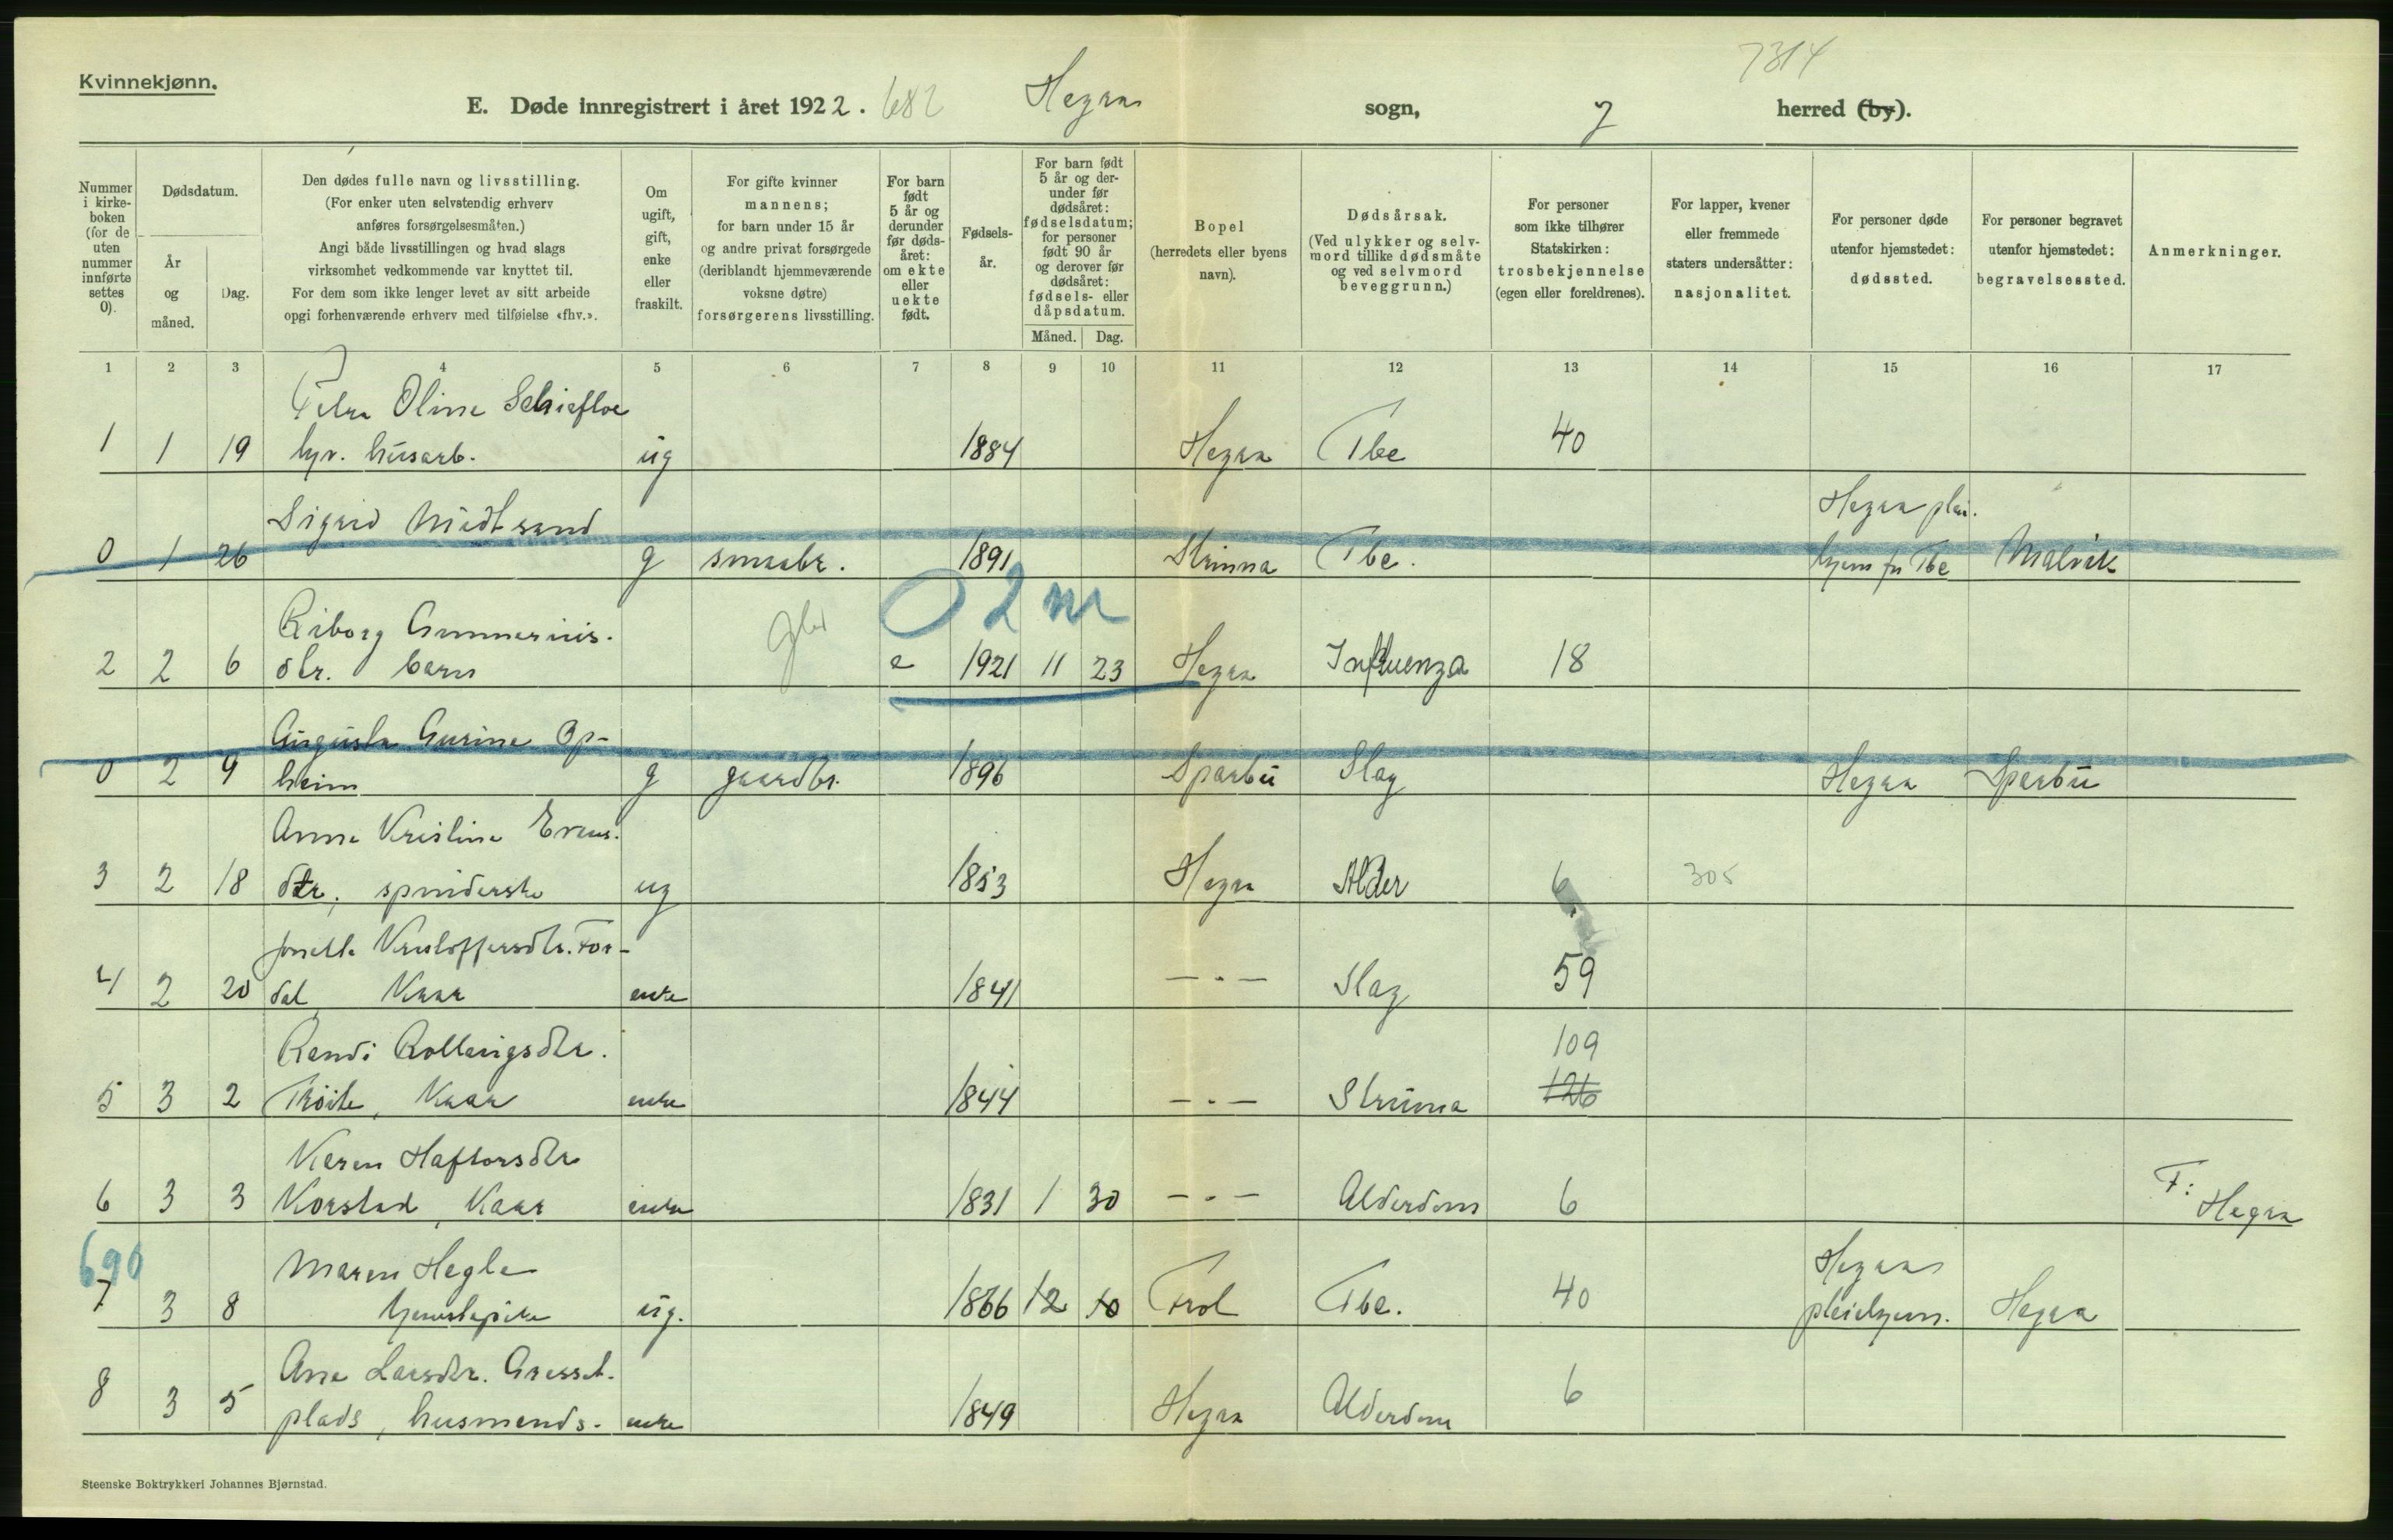 7314
Kvinnekjønn.
E. Døde innregistrert i året 1922. 682 Hegra sogn, herred (by).
Nummer i kirke- boken (for de uten nummer innførte settes 0).
Dødsdatum.
År og måned.
Dag.
Den dødes fulle navn og livsstilling.
(For enker uten selvstendig erhverv
anføres forsørgelsesmåten.)
Angi både livsstillingen og hvad slags
virksomhet vedkommende var knyttet til.
For dem som ikke lenger levet av sitt arbeide
opgi forhenværende erhverv med tilføielse «fhv.».
Om ugift, gift, enke eller fraskilt.
For gifte kvinner
mannens;
for barn under 15 år
og andre privat forsørgede
(deriblandt hjemmeværende
voksne døtre)
forsørgerens livsstilling.
For barn født 5 år og derunder før døds- året: om ekte eller uekte født.
Fødsels- år.
For barn født 5 år og der- under før dødsåret: fødselsdatum; for personer født 90 år og derover før dødsåret: fødsels- eller dåpsdatum.
Måned. Dag.
Bopel
(herredets eller byens
navn).
Dødsårsak.
(Ved ulykker og selv-
mord tillike dødsmåte
og ved selvmord
beveggrunn.)
For personer
som ikke tilhører
Statskirken:
trosbekjennelse
(egen eller foreldrenes).
For lapper, kvener
eller fremmede
staters undersåtter:
nasjonalitet.
For personer døde
utenfor hjemstedet:
dødssted.
For personer begravet
utenfor hjemstedet:
begravelsessted.
Anmerkninger.
1 2 3 4 5 6 7 8 9 10 11 12 13 14 15 16 17
Petra Oline Schiefloe
1 1 19 husarb. ug 1884 Hegra Tbc 40
Sigrid Midtsand Hegra plei.
0 1 26 g smaabr. 1891 Strinna Tbc. hjem for Tbc Malvik
02 m
gbr
2 2 6 dtr. barn e 1921 11 23 Hegra Influenza 18
Augusta Gurine Op-
0 2 9 heim g gaardbr. 1896 Sparbu Slag Hegra Sparbu
Anna Kristine
3 2 18 dtr, spinderske ug 1853 Hegra Alder 6 305
Kristoffersdtr. For-
4 2 20 dal Kaar enke 1841 — " — Slag 59
Randi 109
5 3 2 Trøite, Kaar enke 1844 — " — Struma 126
Karen Haftorsdtr
6 3 3 Korstad, Kaar enke 1831 1 30 — " — Alderdom 6 F: Hegra
690
Maren Hegle Hegra
7 3 8 ug. 1866 12 10 Frol Tbc. 40 pleiehjem. Hegra
Ane Larsdtr.
8 3 5 plads, husmands- enke 1849 Hegra Alderdom 6
Steenske Boktrykkeri Johannes Bjørnstad.